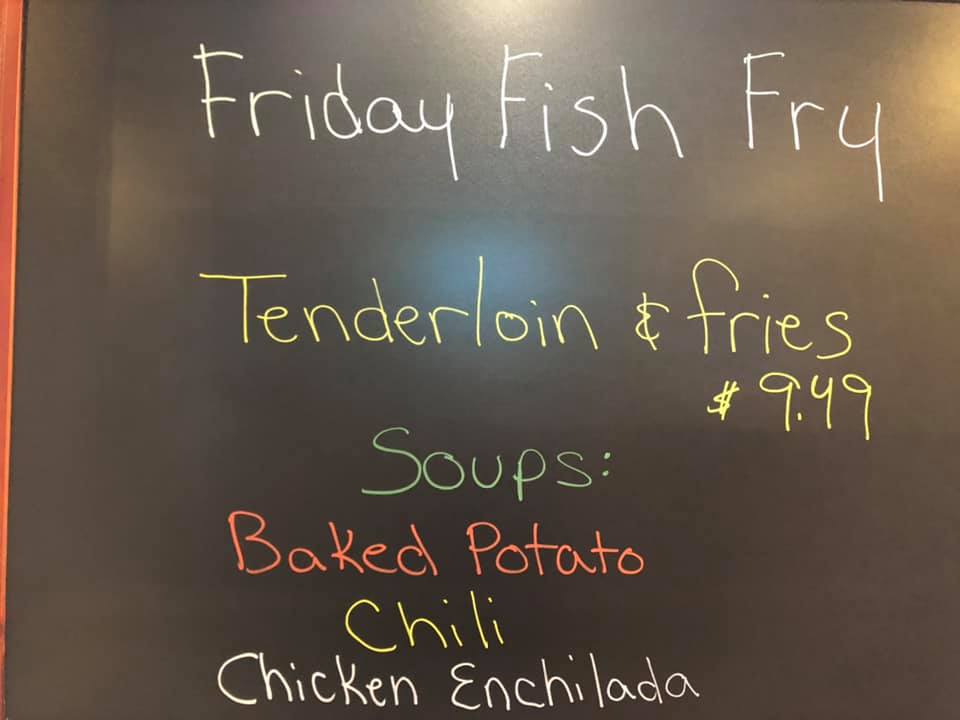 Friday Fish Fry
Tenderloin & fries
$ 9.49
Soups:
Baked Potato
Chili
Chicken Enchilada